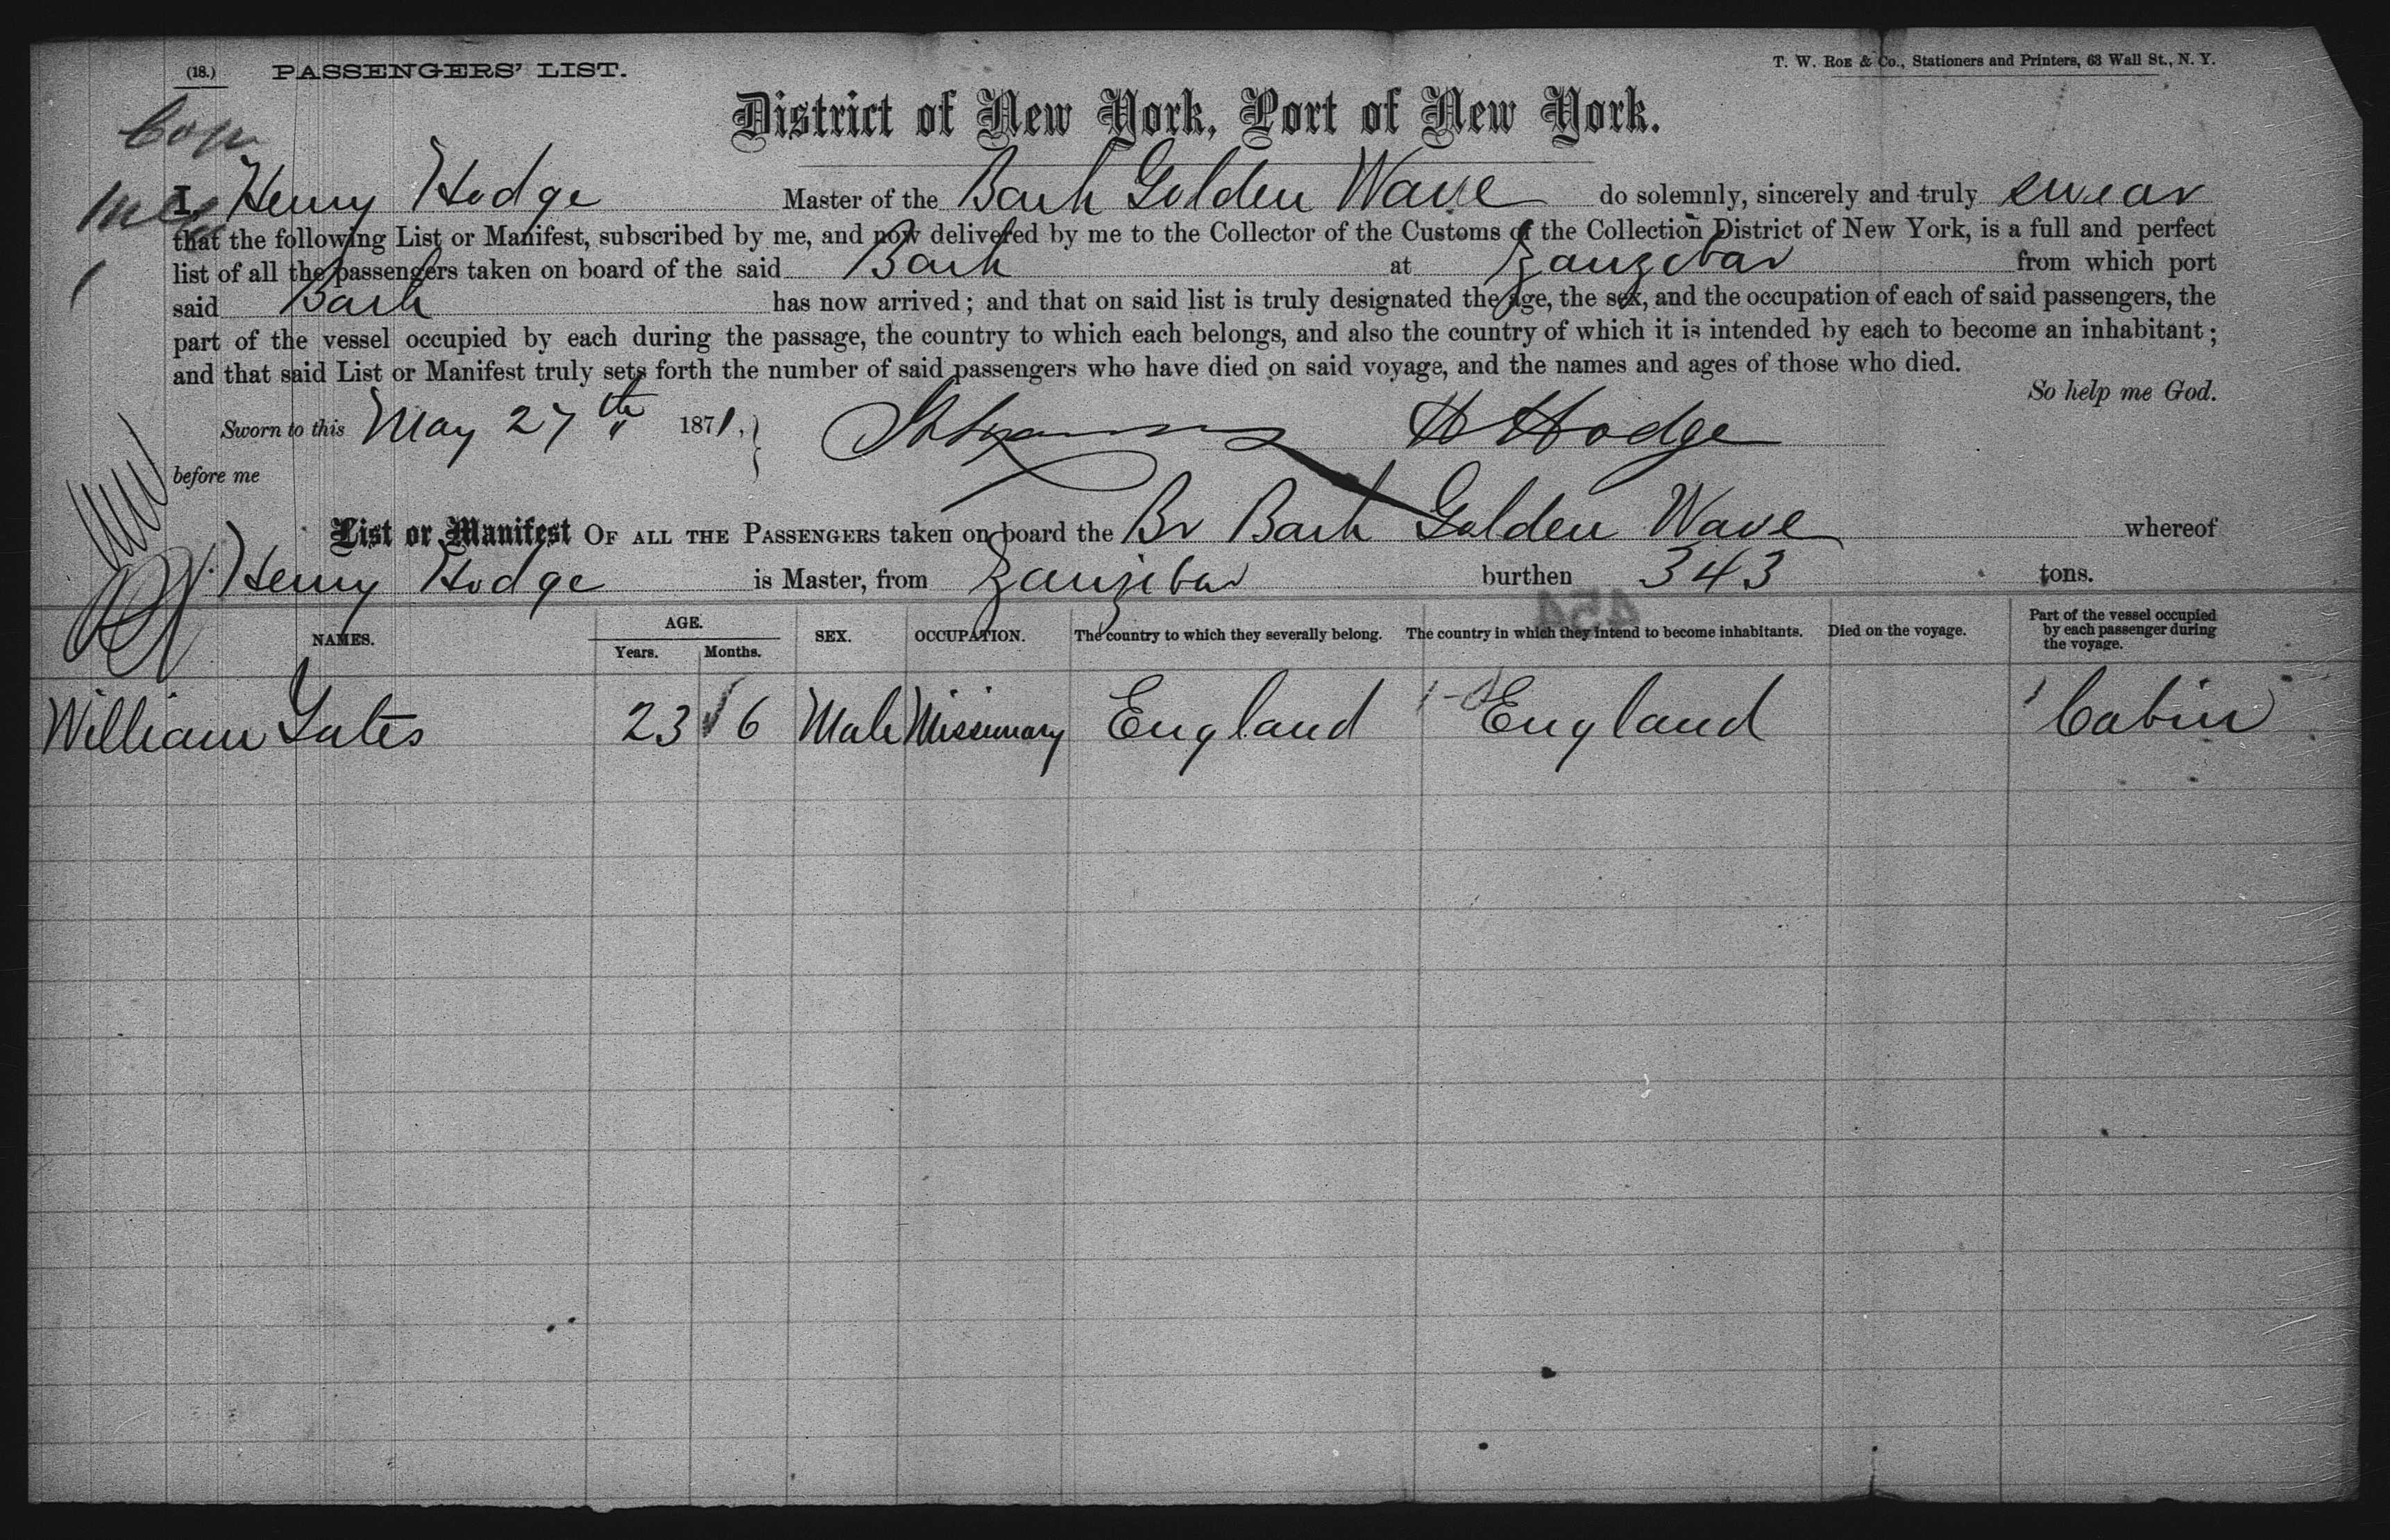 (18.) PASSENGERS' LIST.
T. W. Roe & Co., Stationers and Printers, 63 Wall St., N. Y.
District of New York, Port of New York.
I, Henry Hodge Master of the Bark Golden Wave do solemnly, sincerely and truly swear
that the following List or Manifest, subscribed by me, and now delivered by me to the Collector of the Customs of the Collection District of New York, is a full and perfect
list of all the passengers taken on board of the said Bark at Zanzibar from which port
said Bark has now arrived; and that on said list is truly designated the age, the sex, and the occupation of each of said passengers, the
part of the vessel occupied by each during the passage, the country to which each belongs, and also the country of which it is intended by each to become an inhabitant;
and that said List or Manifest truly sets forth the number of said passengers who have died on said voyage, and the names and ages of those who died.
So help me God.
Sworn to this May 27th 1871, H Hodge
before me
List or Manifest OF ALL THE PASSENGERS taken on board the Br Bark Golden Wave whereof
Henry Hodge is Master, from Zanzibar burthen 343 tons.
454
NAMES. AGE. Years. Months. SEX. OCCUPATION. The country to which they severally belong. The country in which they intend to become inhabitants. Died on the voyage. Part of the vessel occupied by each passenger during the voyage.
William Yates 23 6 Male Missionary England England Cabin